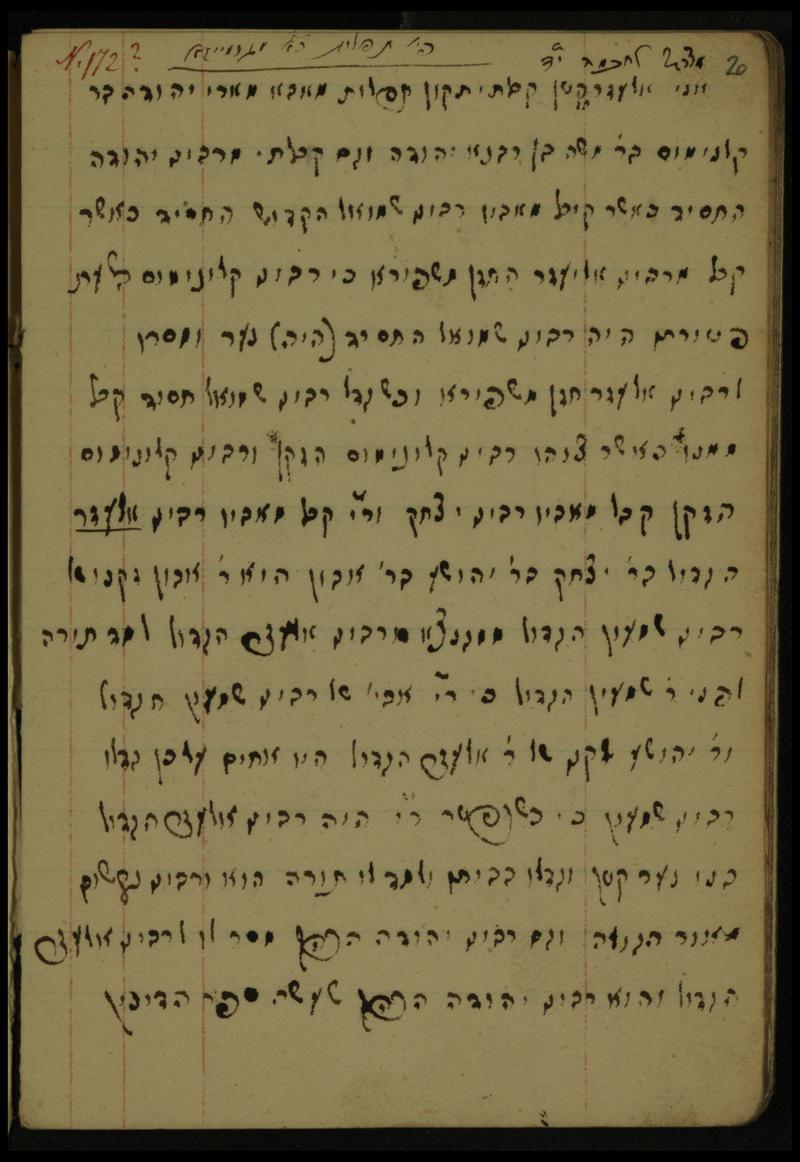 No. 172 ? הי' תפלות לר' מגרמייזא מצרף לחכמה י"ד 20
אני אלעזר הקטן קבלתי תיקון תפלות מאבא מארי יהודה בר
קלונימוס בר' משה בן רבנא יהודה וגם קבלתי מרבינו יהודה
החסיד כאשר קיבל מאביו רבינו שמואל הקדוש החסיד כאשר
קבל מרבינו אליעזר החזן משפירא כי רבינו קלונימוס בעת
פטירתו היה רבינו שמואל החסיד (היה) נער ומסרן
לרבינו אלעזר חזן משפירא וכשגדל רבינו שמואל חסיד קבל
ממנו כאשר צוהו רבינו קלונימוס הזקן ורבינו קלונימוס
הזקן קבל מאביו רבינו יצחק ור"י קבל מאביו רבינו אלעזר
הגדול בר' יצחק בר' יהושע בר' אבון הוא ר' אבון זקנו של
רבינו שמעון הגדול ממגנצא מרבינו אלעזר הגדול למד תורה
לפני ר' שמעון הגדול כי ר"י אביו של רבינו שמעון הגדול
ור' יהושע זקנו של ר' אלעזר הגדול היו אחים על כן גדלו
רבינו שמעון כי כשנפטר ר"י היה רבינו אלעזר הגדול
בנו נער קטן וגדלו בביתו ולמד לו תורה הוא ורבינו גרשום
מאור הגולה וגם רבינו יהודה הכהן מסר לו לרבינו אלעזר
הגדול והוא רבינו יהודה הכהן שעשה ספר הדינין